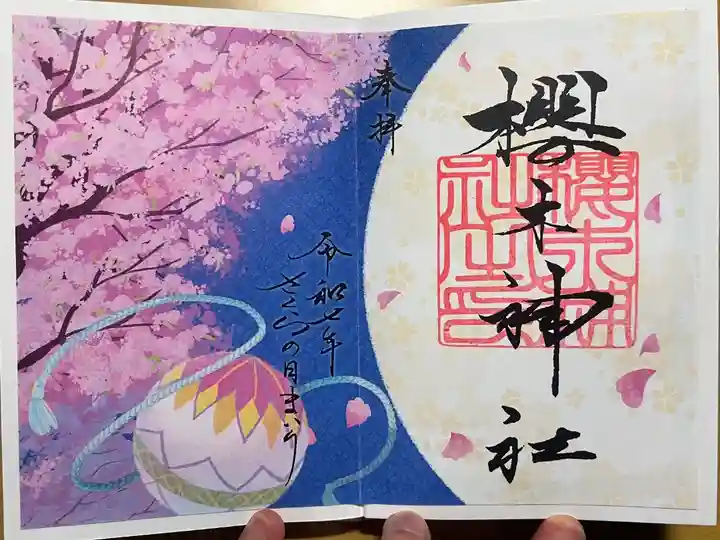 奉拝
櫻木神社
櫻木神社之印
令和七年
さくらの日まいり